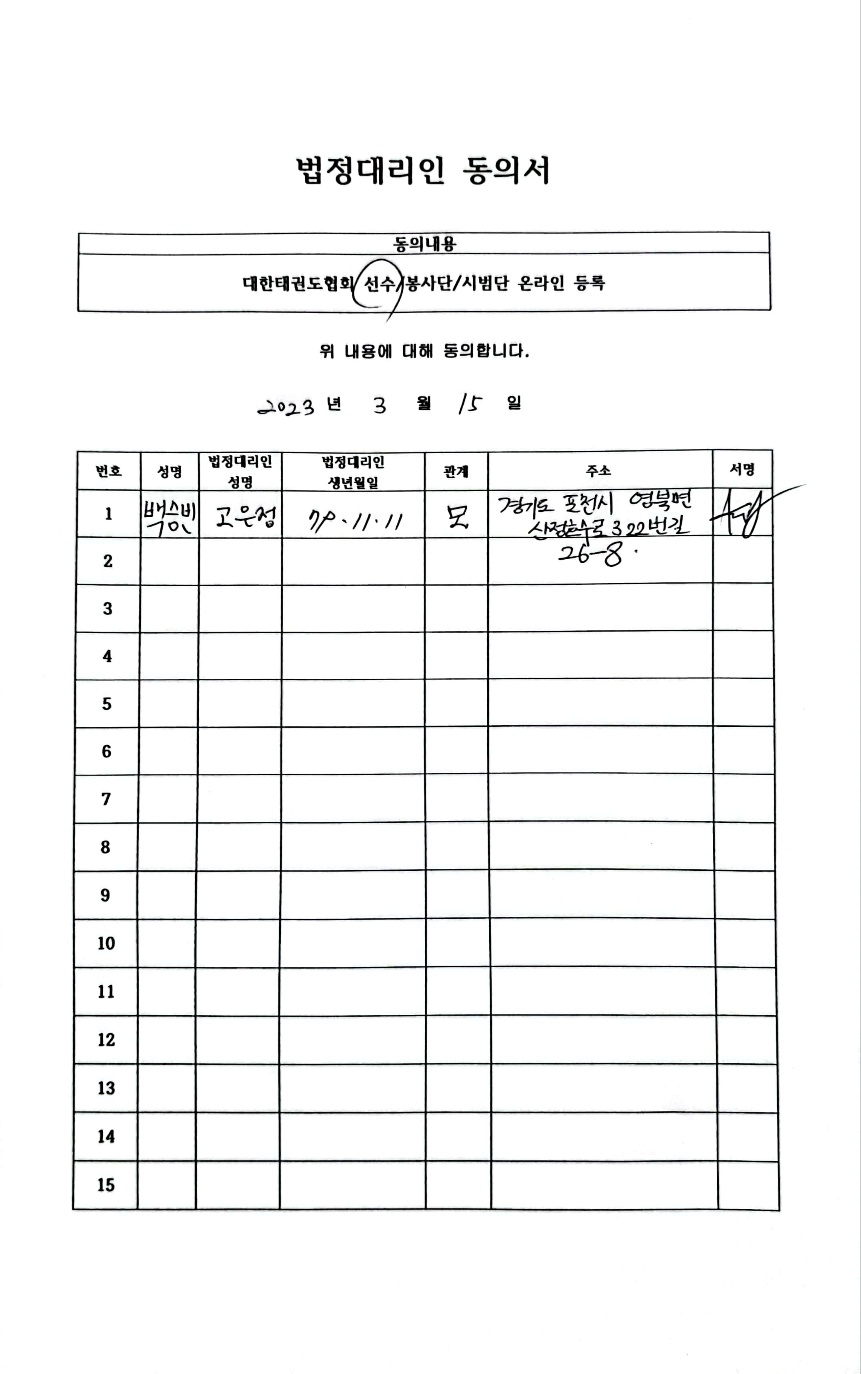 법정대리인 동의서
동의내용
대한태권도협회 선수/봉사단/시범단 온라인 등록
위 내용에 대해 동의합니다.
2023 년 3 월 15 일
번호 성명 법정대리인 성명 법정대리인 생년월일 관계 주소 서명
1 고은정 79.11.11 모 경기도 포천시 영북면
산정호수로 322번길
2 26-8.
3
4
5
6
7
8
9
10
11
12
13
14
15